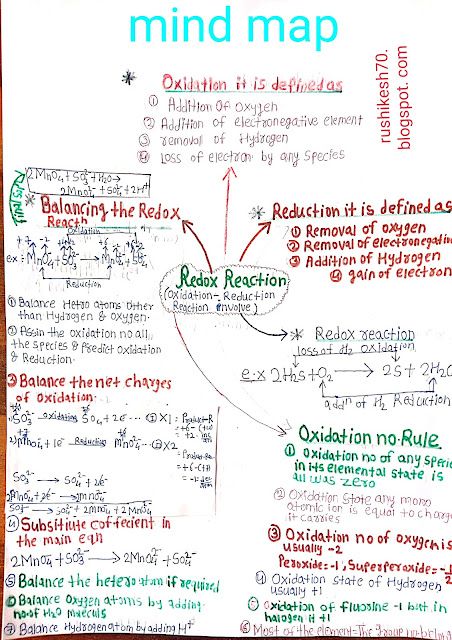 mind map
rushikesh70.
blogspot. com
* Oxidation it is defined as
① Addition Of oxygen
② Addition of electronegative element
③ removal of Hydrogen
④ Loss of electron by any Species
2MnO4⁻ + SO3²⁻ + H2O →
2MnO4²⁻ + SO4²⁻ + 2H⁺
* Balancing the Redox
Reactn
Oxidation
ex: MnO4⁻ + SO3²⁻ → MnO4²⁻ + SO4²⁻
Reduction
① Balance Hetro atoms other
than Hydrogen & Oxygen.
② Assin the oxidation no. all
the species & Predict oxidation
& Reduction.
③ Balance the net charges
of oxidation
SO3²⁻ oxidation SO4²⁻ + 2e⁻ ... ① X1
2) MnO4⁻ + 1e⁻ Reducting MnO4²⁻ ... ② X2
SO3²⁻ → SO4²⁻ + 2e⁻
2MnO4⁻ + 2e⁻ → 2MnO4²⁻
4) Subsitiute cofficient in
the main eqn
2MnO4⁻ + SO3²⁻ → 2MnO4²⁻ + SO4²⁻
⑤ Balance the hetero atom if required
⑥ Balance Oxygen atoms by adding
no. of H2O moleculs
⑦ Balance Hydrogen atom by adding H⁺
Redox Reaction
(Oxidation - Reduction
Reaction involve)
* Reduction it is defined as
① Removal of oxygen
② Removal of electronegatin
③ Addition of Hydrogen
④ gain of electron
* Redox reaction
loss of H2 Oxidation
e.x 2H2S + O2 → 2S + 2H2O
addn of H2 Reduction
Oxidation no. Rule
① Oxidation no of any Specie
in its elemental state is
all was zero
② Oxidation State any mono
atomic ion is equal to charge
it carries
③ Oxidation no of oxygh is
usually -2
Peroxide = -1, Superperoxide = -1/2
④ Oxidation state of Hydrogen
usually +1
⑤ Oxidation of fluorine -1 but in
halogen it +1
⑥ Most of the element - The